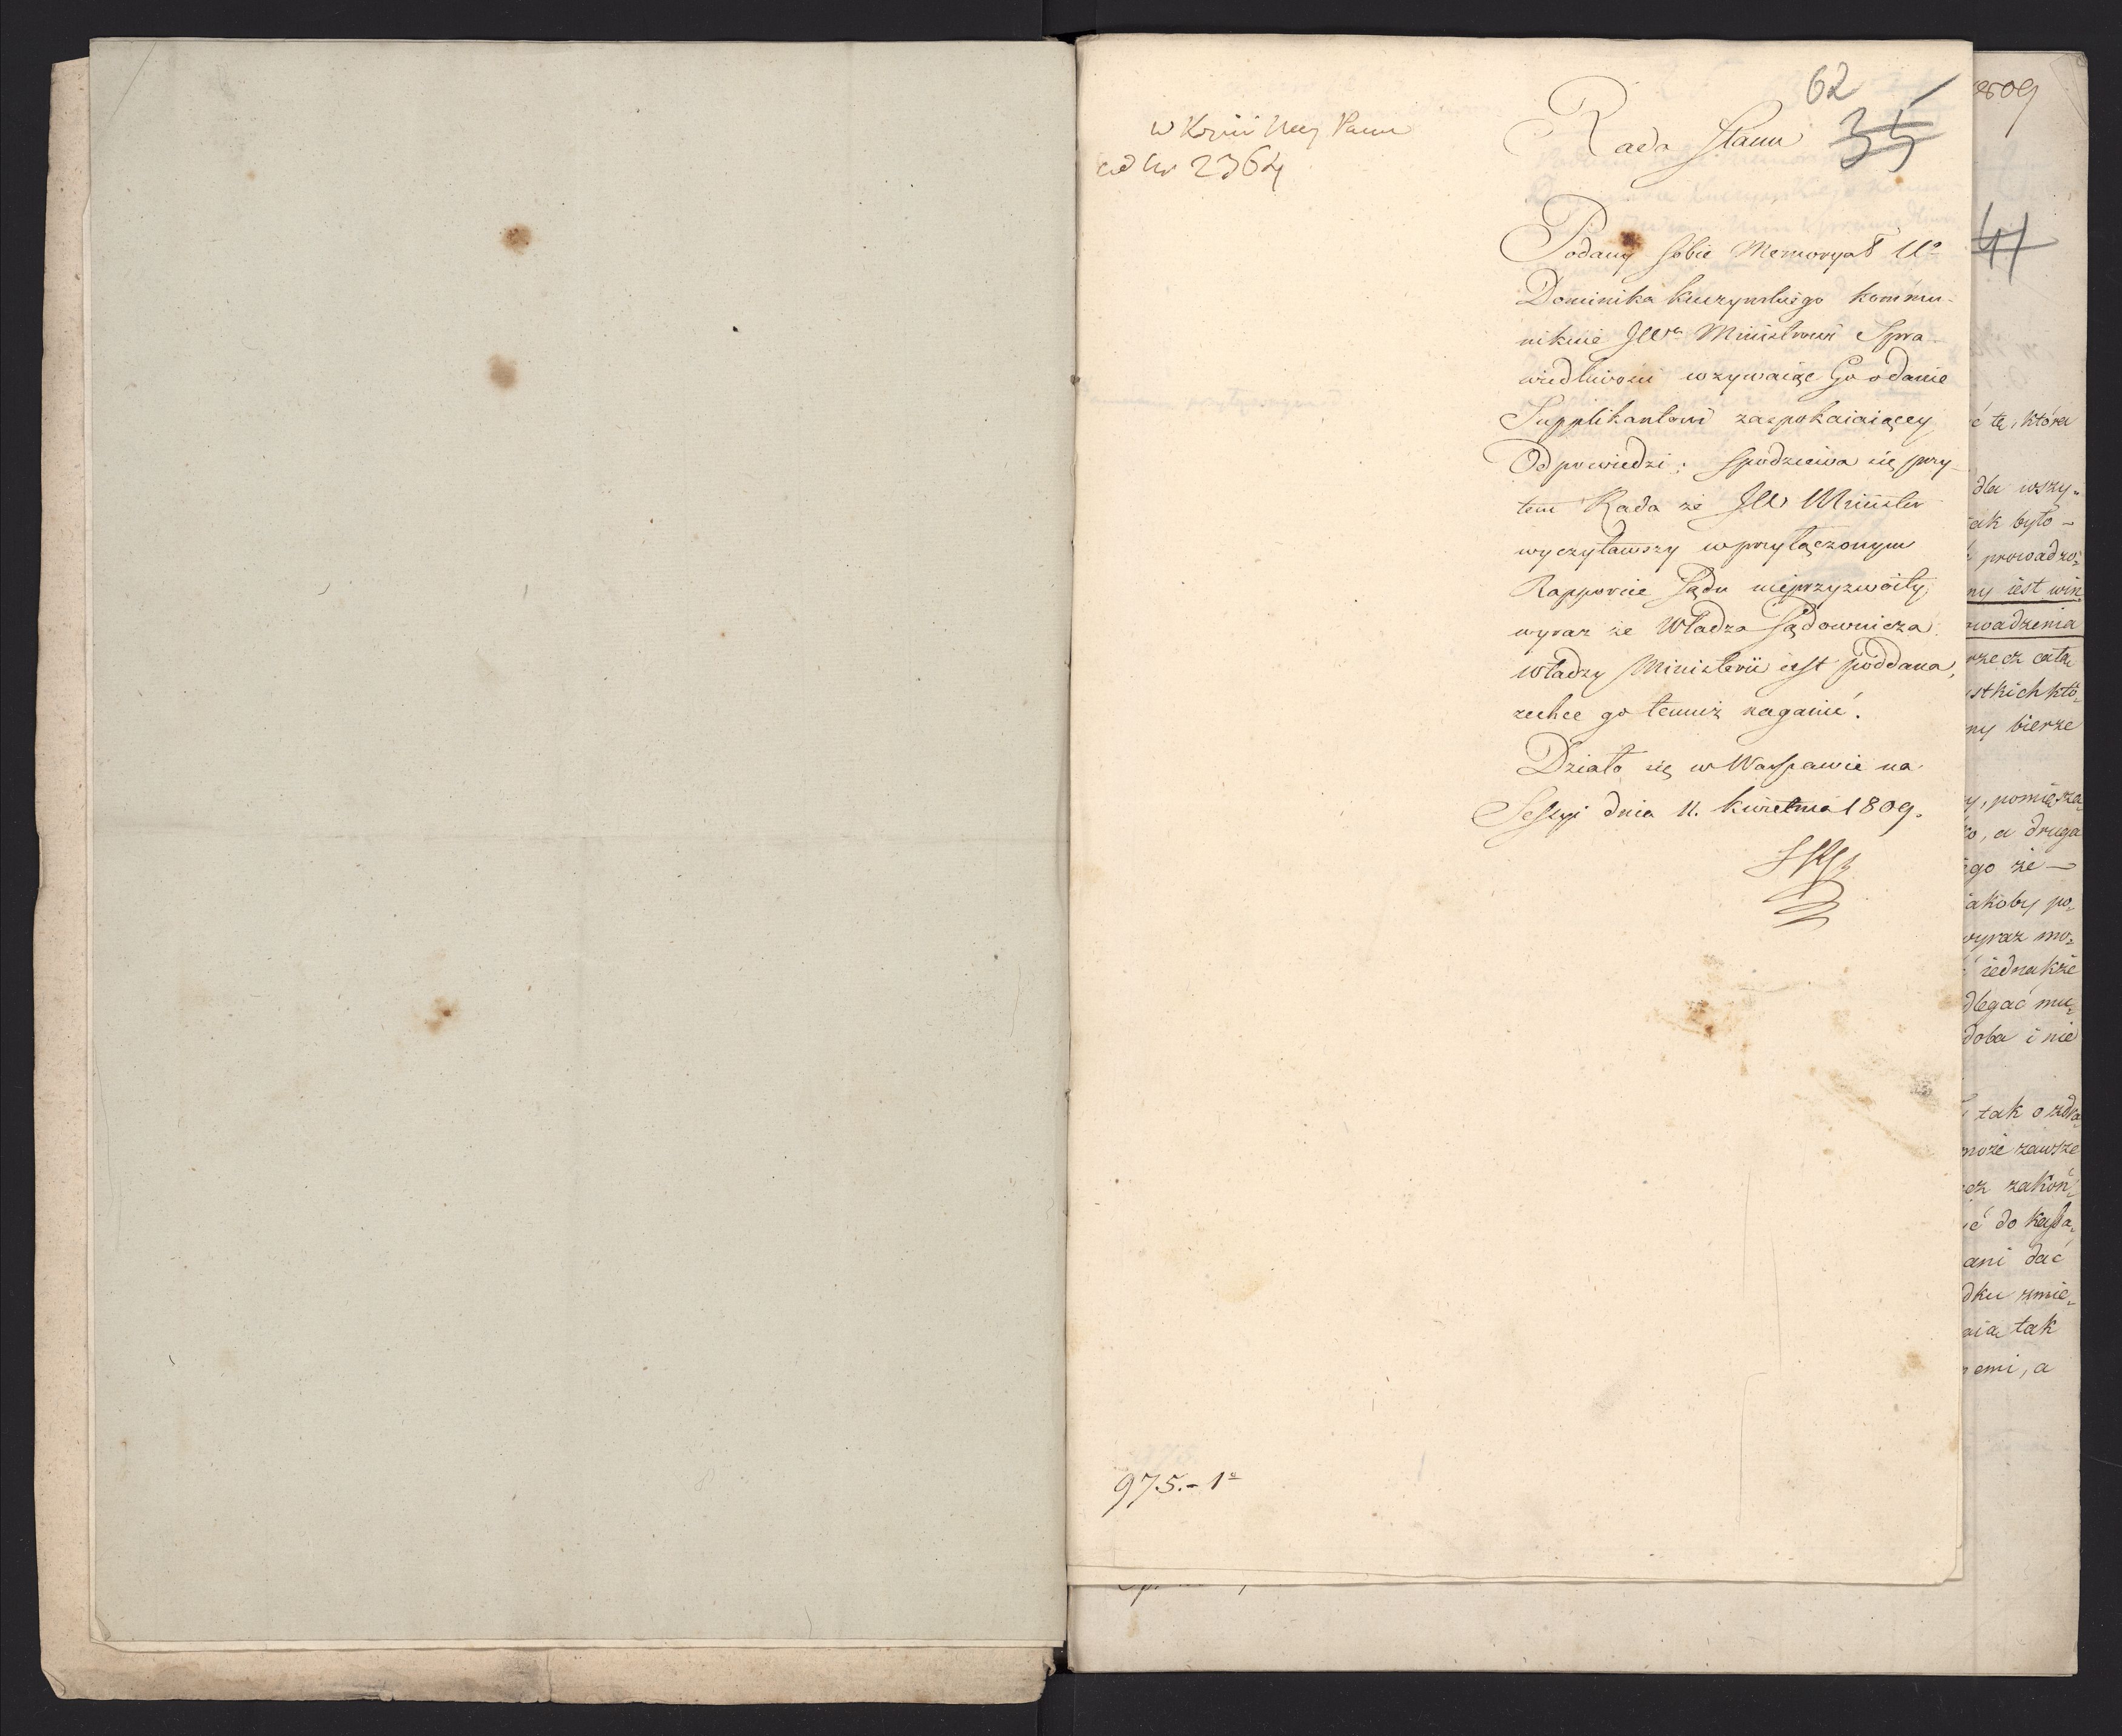 62
Rada Stanu 35
ad Nr 2364
Podany sobie Memoryał Uo
Dominika Kuczynskiego kommu-
nikuie JWu Ministrowi Spra-
wiedliwosci wzywaiąc Go o danie
Supplikantowi zaspokaiaiącey
Odpowiedzi; spodziewa się przy-
tem Rada że JW Minister
wyczytawszy w przyłączonym
Rapporcie Sądu nieprzyzwoity
wyraz że Władza Sądownicza
władzy Ministerii iest poddana,
zechce go temuż naganić.
Działo się w Warszawie na
Sessyi dnia 11. Kwietnia 1809.
975.-1o
1809
41
ć tę, która
dla wszy-
iak było -
prowadzo-
ny iest win
owadzenia
rzecz cała
stkich któ-
ny bierze
y, pomięsza
o, a druga
ego że -
iakoby po-
wyraz mo-
iednakże
dlegać mu-
doba i nie
tak o zdra
może zawsze
ez zakoń-
ć do kassa-
ani dać
dku zmie-
aią tak
emi, a